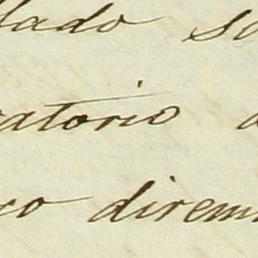 llado so
ratorio a
co direm